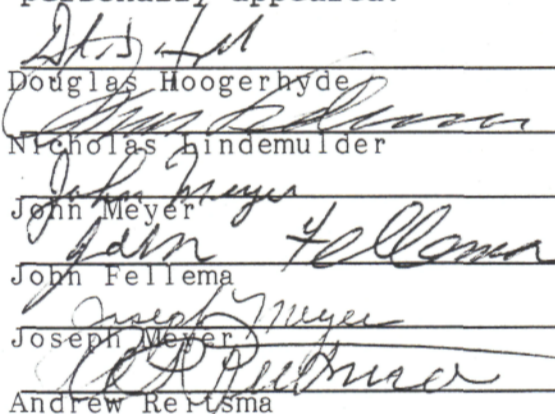 personally appeared:
Douglas Hoogerhyde
Nicholas Lindemulder
John Meyer
John Meyer
John Fellema
John Fellema
Joseph Meyer
Joseph Meyer
Andrew Reitsma